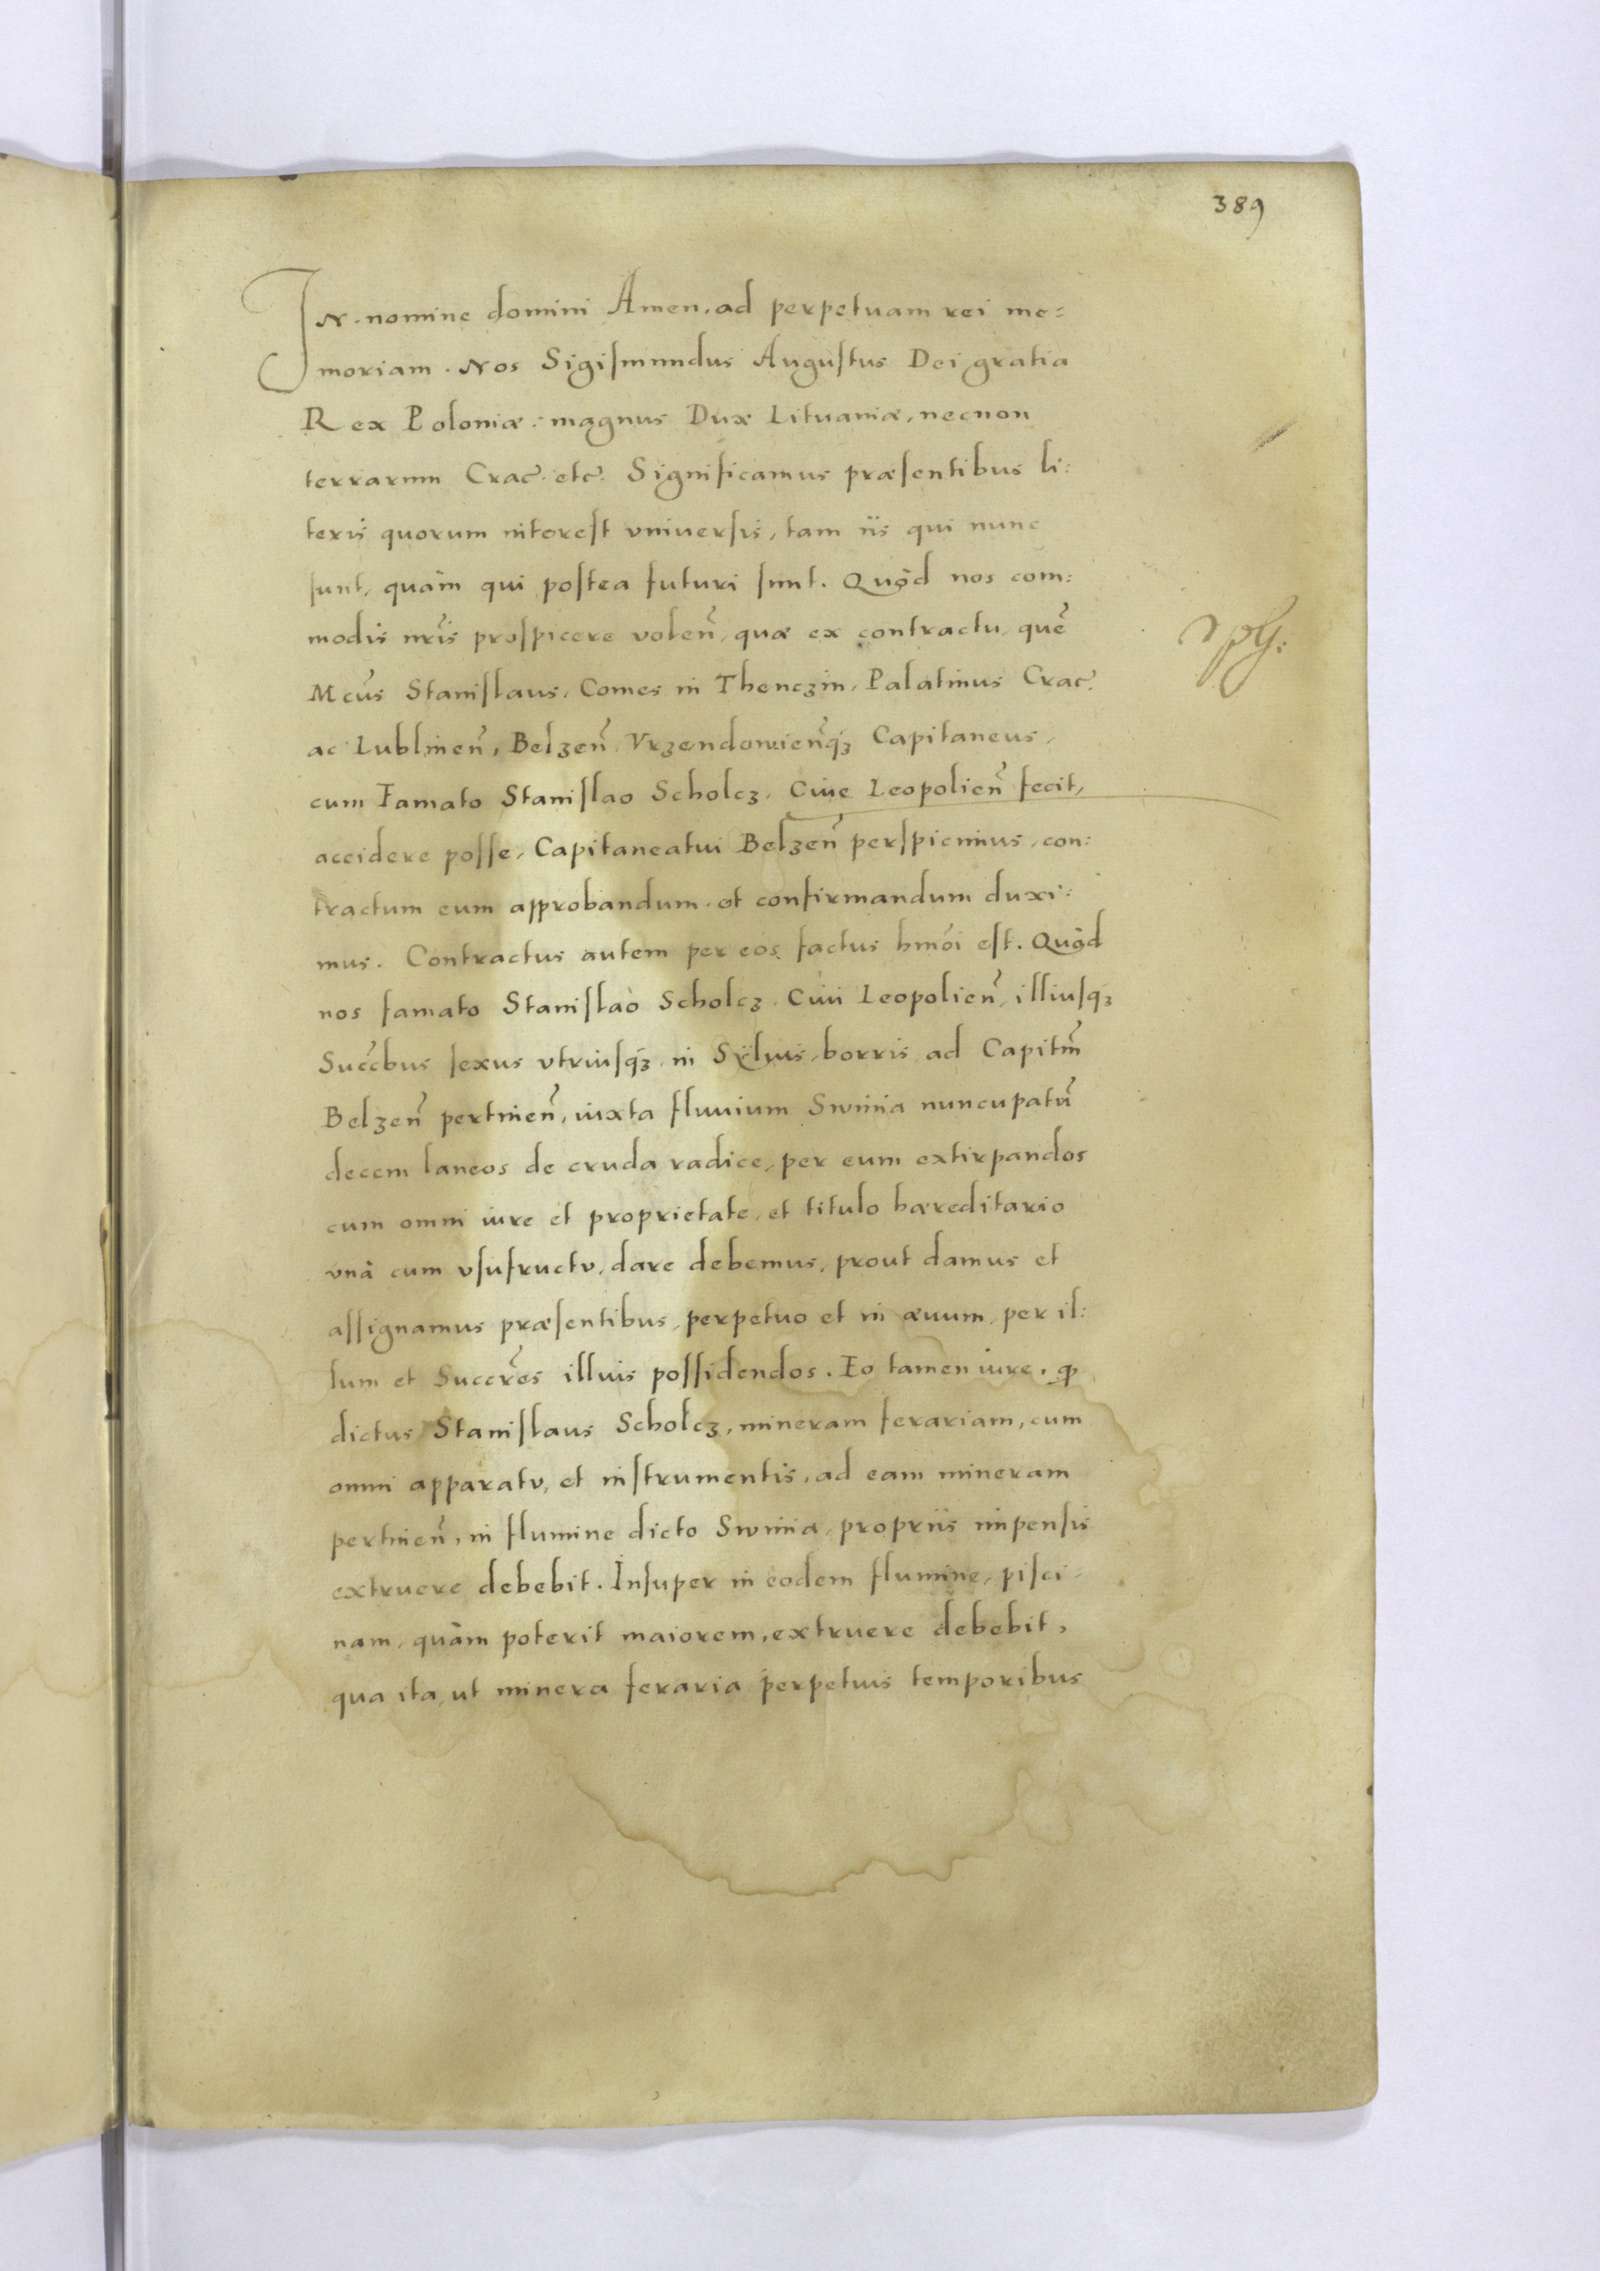 389
IN. nomine domini Amen, ad perpetuam rei me=
moriam. Nos Sigiſmundus Auguſtus Dei gratia
Rex Poloniæ: magnus Dux Lituaniæ, necnon
terrarum Crac̃. etc̃. Significamus præſentibus li:
teris quorum intereſt vniuerſis, tam iis qui nunc
ſunt, quàm qui poſtea futuri ſunt. Quòd nos com:
modis nr̃is proſpicere volen̄, quæ ex contractu, quē
Mcūs Staniſlaus, Comes in Thenczin, Palatinus Crac̃.
ac Lublinen̄, Belzen̄, Vrzendowien̄qꝫ Capitaneus,
cum Famato Staniſlao Scholcz, Ciue Leopolien̄ fecit,
accidere poſſe, Capitaneatui Belzen̄ perſpicimus, con:
tractum eum approbandum et confirmandum duxi:
mus. Contractus autem per eos factus hmōi eſt. Quòd
nos famato Staniſlao Scholcz Ciui Leopolien̄, illiuſqꝫ
Succ̃bus ſexus vtriuſqꝫ in Sÿluis, borris ad Capitm̄
Belzen̄ pertinen̄, iuxta fluuium Swinia nuncupatū
decem laneos de cruda radice, per eum extirpandos
cum omni iure et proprietate, et titulo hæreditario
vnà cum vſufructu, dare debemus, prout damus et
aſſignamus præſentibus, perpetuo et in æuum, per il:
lum et Succr̃es illius poſſidendos. Eo tamen iure, ꝙ
dictus Staniſlaus Scholcz, mineram ferariam, cum
omni apparatu, et inſtrumentis, ad eam mineram
pertinen̄, in flumine dicto Swinia, propriis impenſis
extruere debebit. Inſuper in eodem flumine, piſci-
nam, quàm poterit maiorem, extruere debebit,
qua ita, ut minera feraria perpetuis temporibus